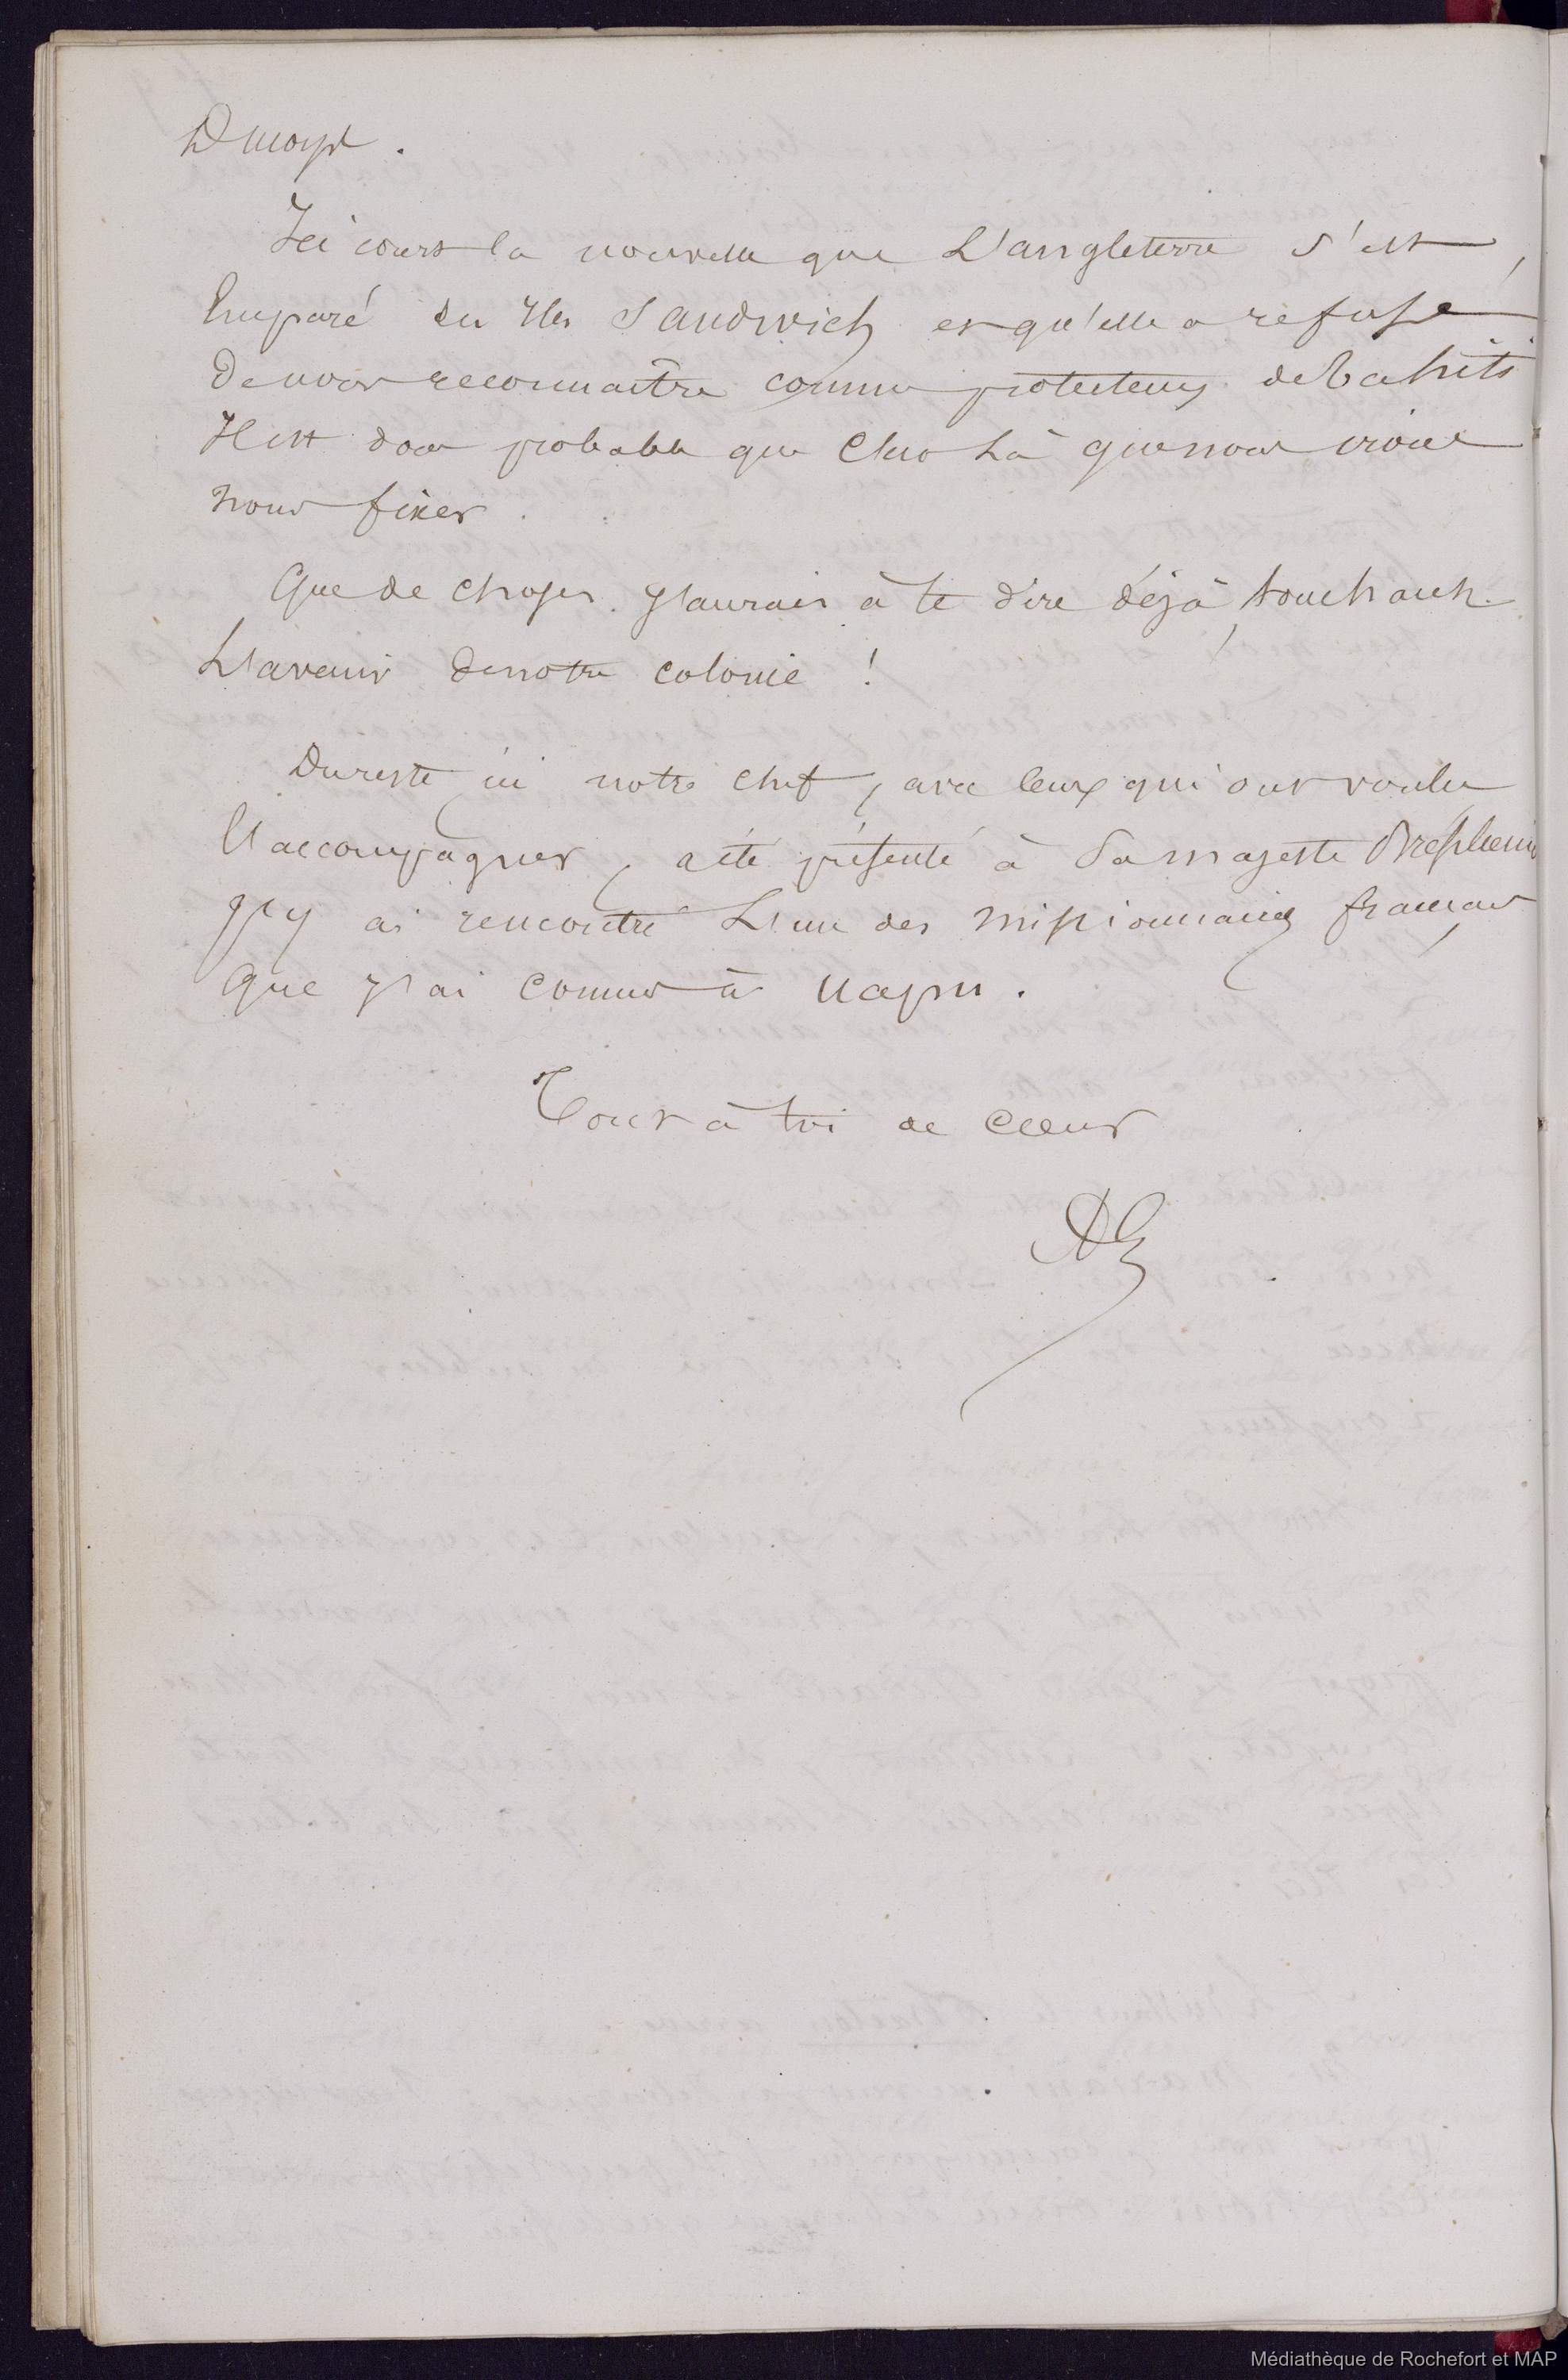 Ici cours la nouvelle que L'angleterre s'est
Emparé des Iles Sandwich et qu'elle a refusé
De nous reconnaître comme protecteurs de Tahiti
Il est donc probable que c'est là que nous irons
nous fixer.
Que de choses j'aurais à te dire déjà, touchant
L'avenir de notre colonie !
Du reste ici notre chef, avec ceux qui ont voulu
L'accompagner, a été présenté à Sa majesté
J'y ai rencontré L'un des missionnaires français
que j'ai connus à uapou.
Tout à toi de cœur
Médiathèque de Rochefort et MAP